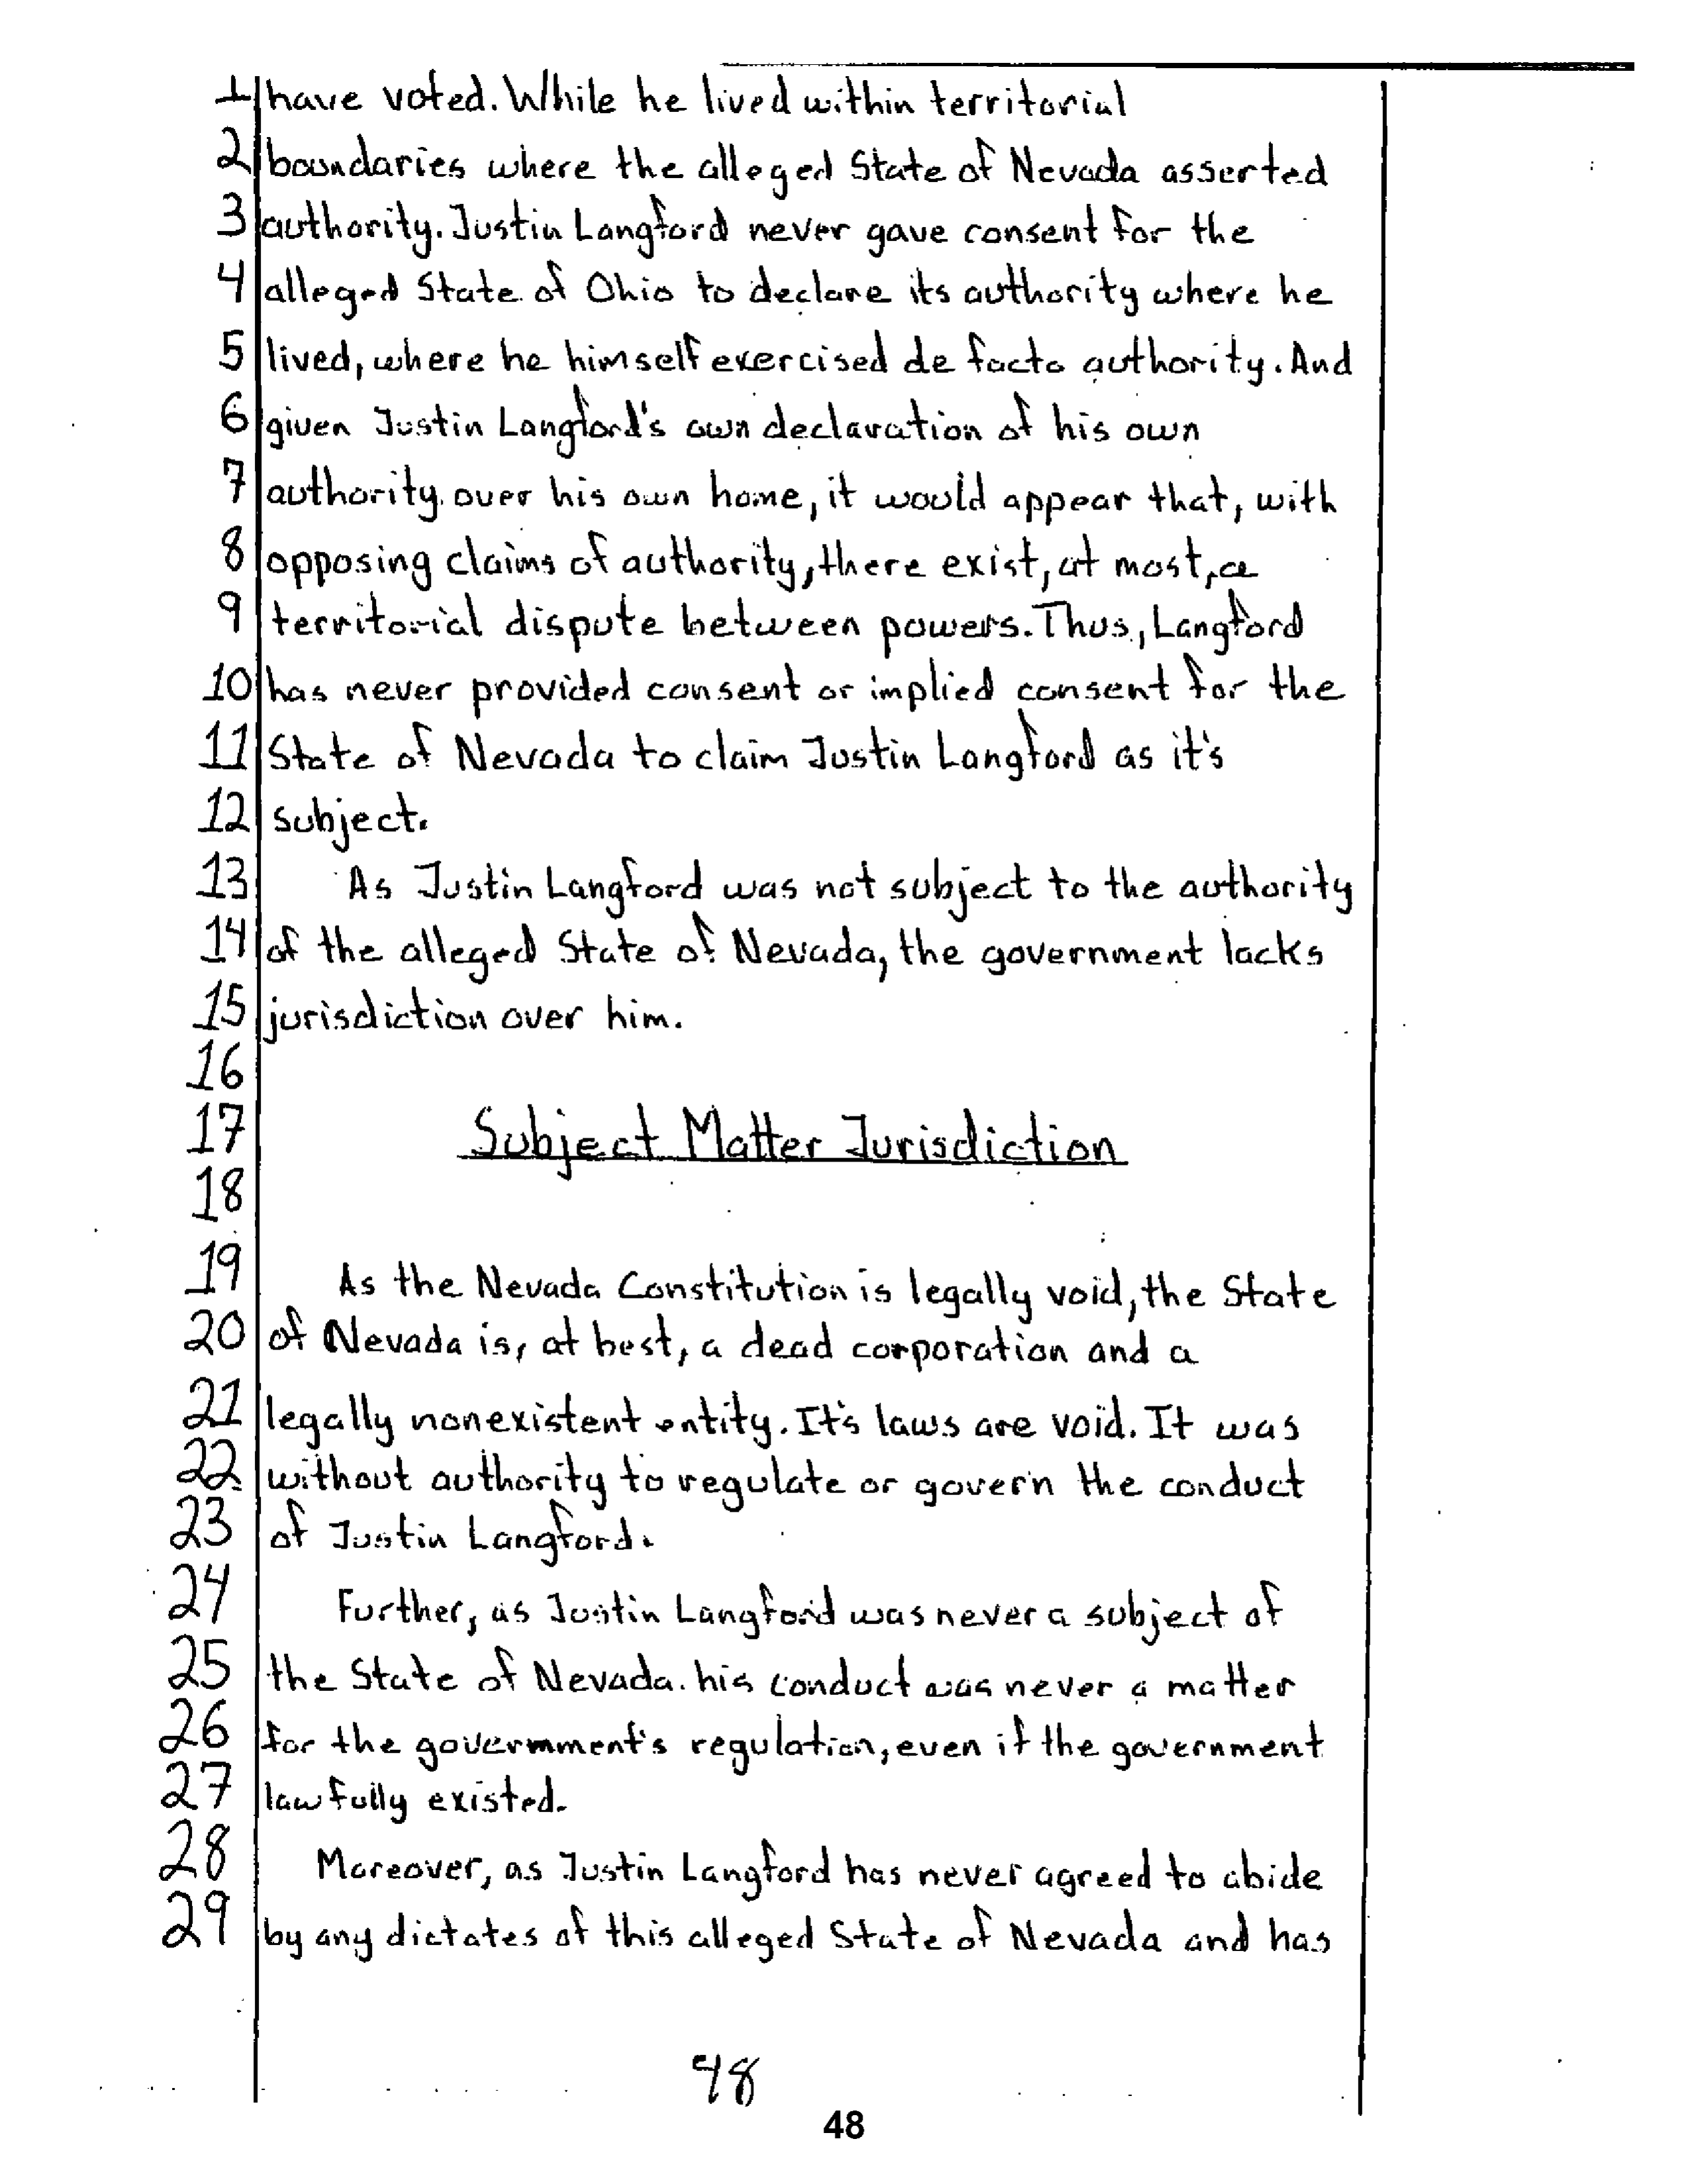 1 have voted. While he lived within territorial
2 boundaries where the alleged State of Nevada asserted
3 authority. Justin Langford never gave consent for the
4 alleged State of Ohio to declare its authority where he
5 lived, where he himself exercised de facto authority. And
6 given Justin Langford's own declaration of his own
7 authority over his own home, it would appear that, with
8 opposing claims of authority, there exist, at most, a
9 territorial dispute between powers. Thus, Langford
10 has never provided consent or implied consent for the
11 State of Nevada to claim Justin Langford as it's
12 subject.
13 As Justin Langford was not subject to the authority
14 of the alleged State of Nevada, the government lacks
15 jurisdiction over him.
16
17 Subject Matter Jurisdiction
18
19 As the Nevada Constitution is legally void, the State
20 of Nevada is, at best, a dead corporation and a
21 legally nonexistent entity. It's laws are void. It was
22 without authority to regulate or govern the conduct
23 of Justin Langford.
24 Further, as Justin Langford was never a subject of
25 the State of Nevada. his conduct was never a matter
26 for the government's regulation, even if the government
27 lawfully existed.
28 Moreover, as Justin Langford has never agreed to abide
29 by any dictates of this alleged State of Nevada and has
48
48